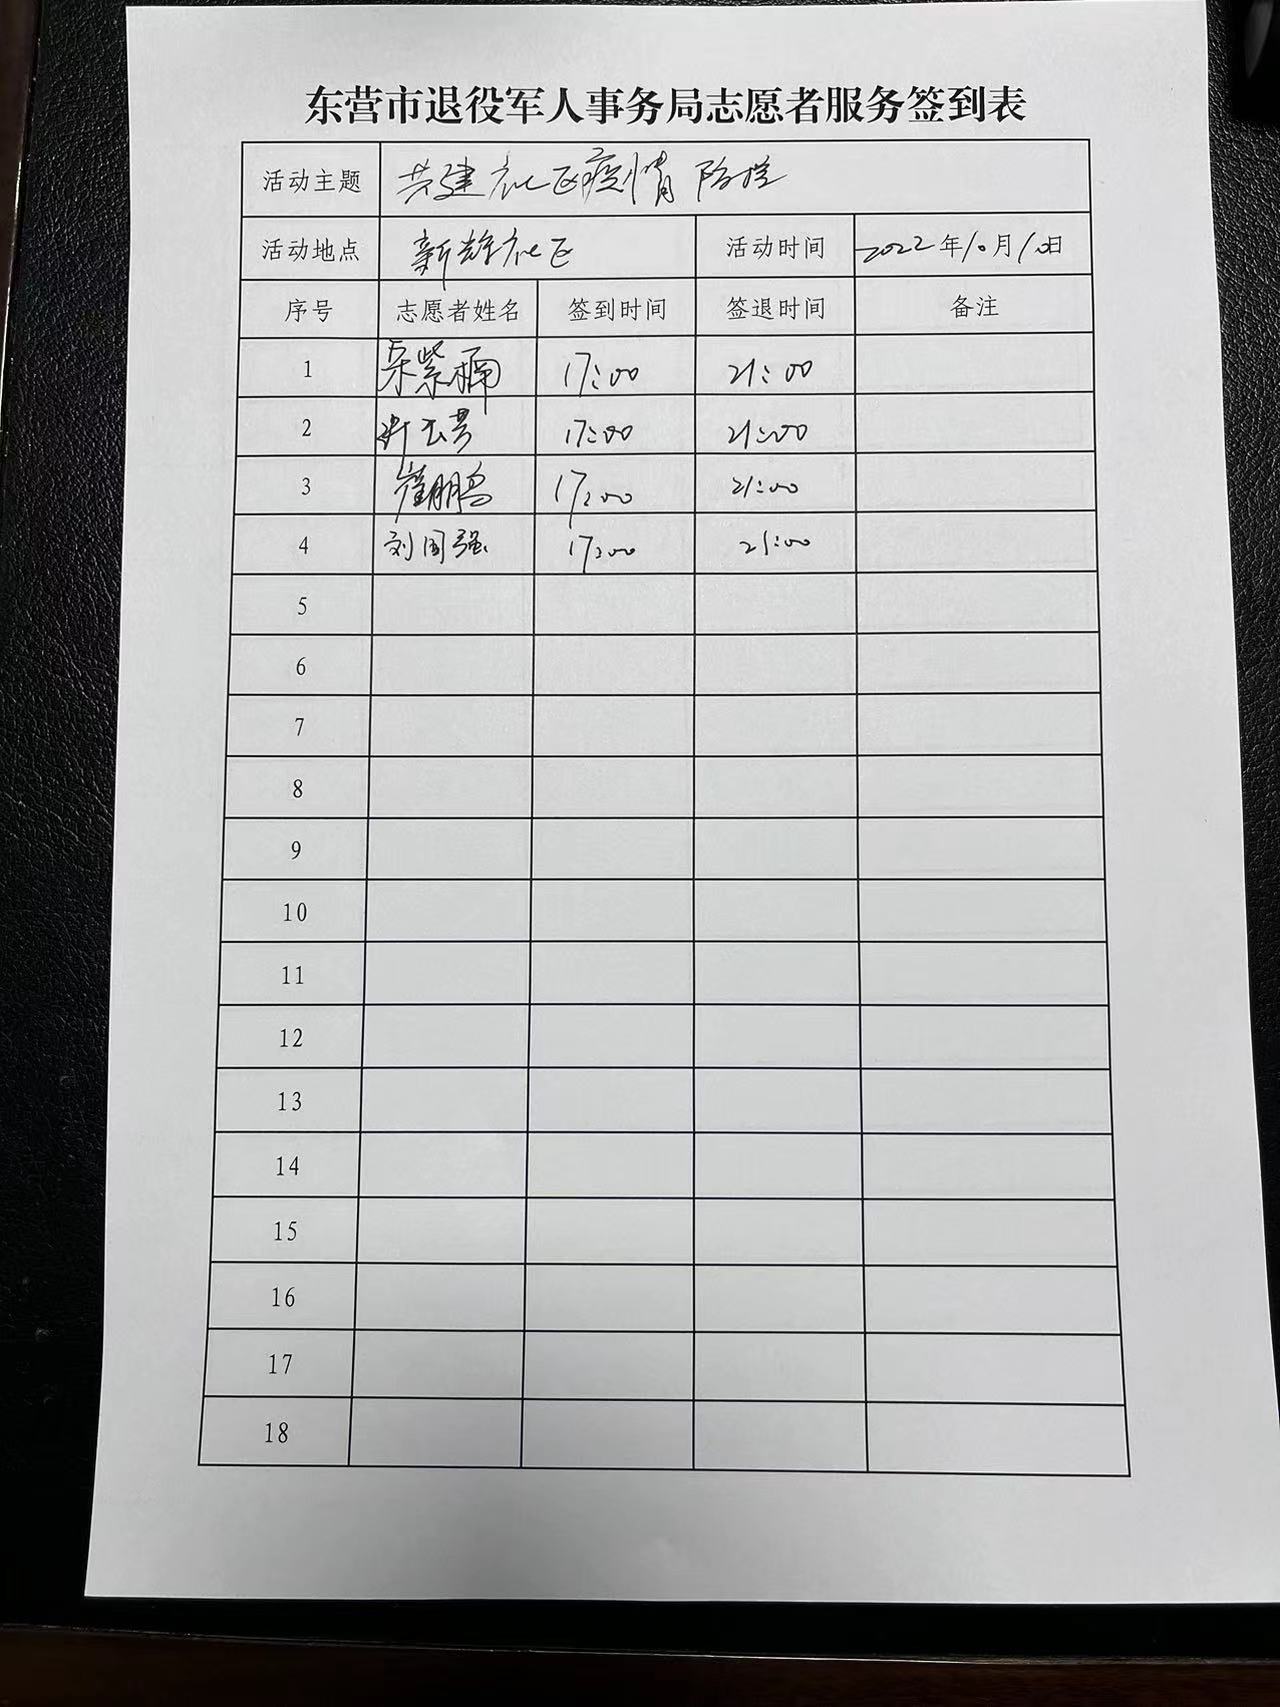 东营市退役军人事务局志愿者服务签到表
活动主题 共建社区疫情防控
活动地点 新辉社区 活动时间 2022年10月10日
序号 志愿者姓名 签到时间 签退时间 备注
1 紫楠 17:00 21:00
2 17:00 21:00
3 崔鹏 17:00 21:00
4 刘国强 17:00 21:00
5
6
7
8
9
10
11
12
13
14
15
16
17
18